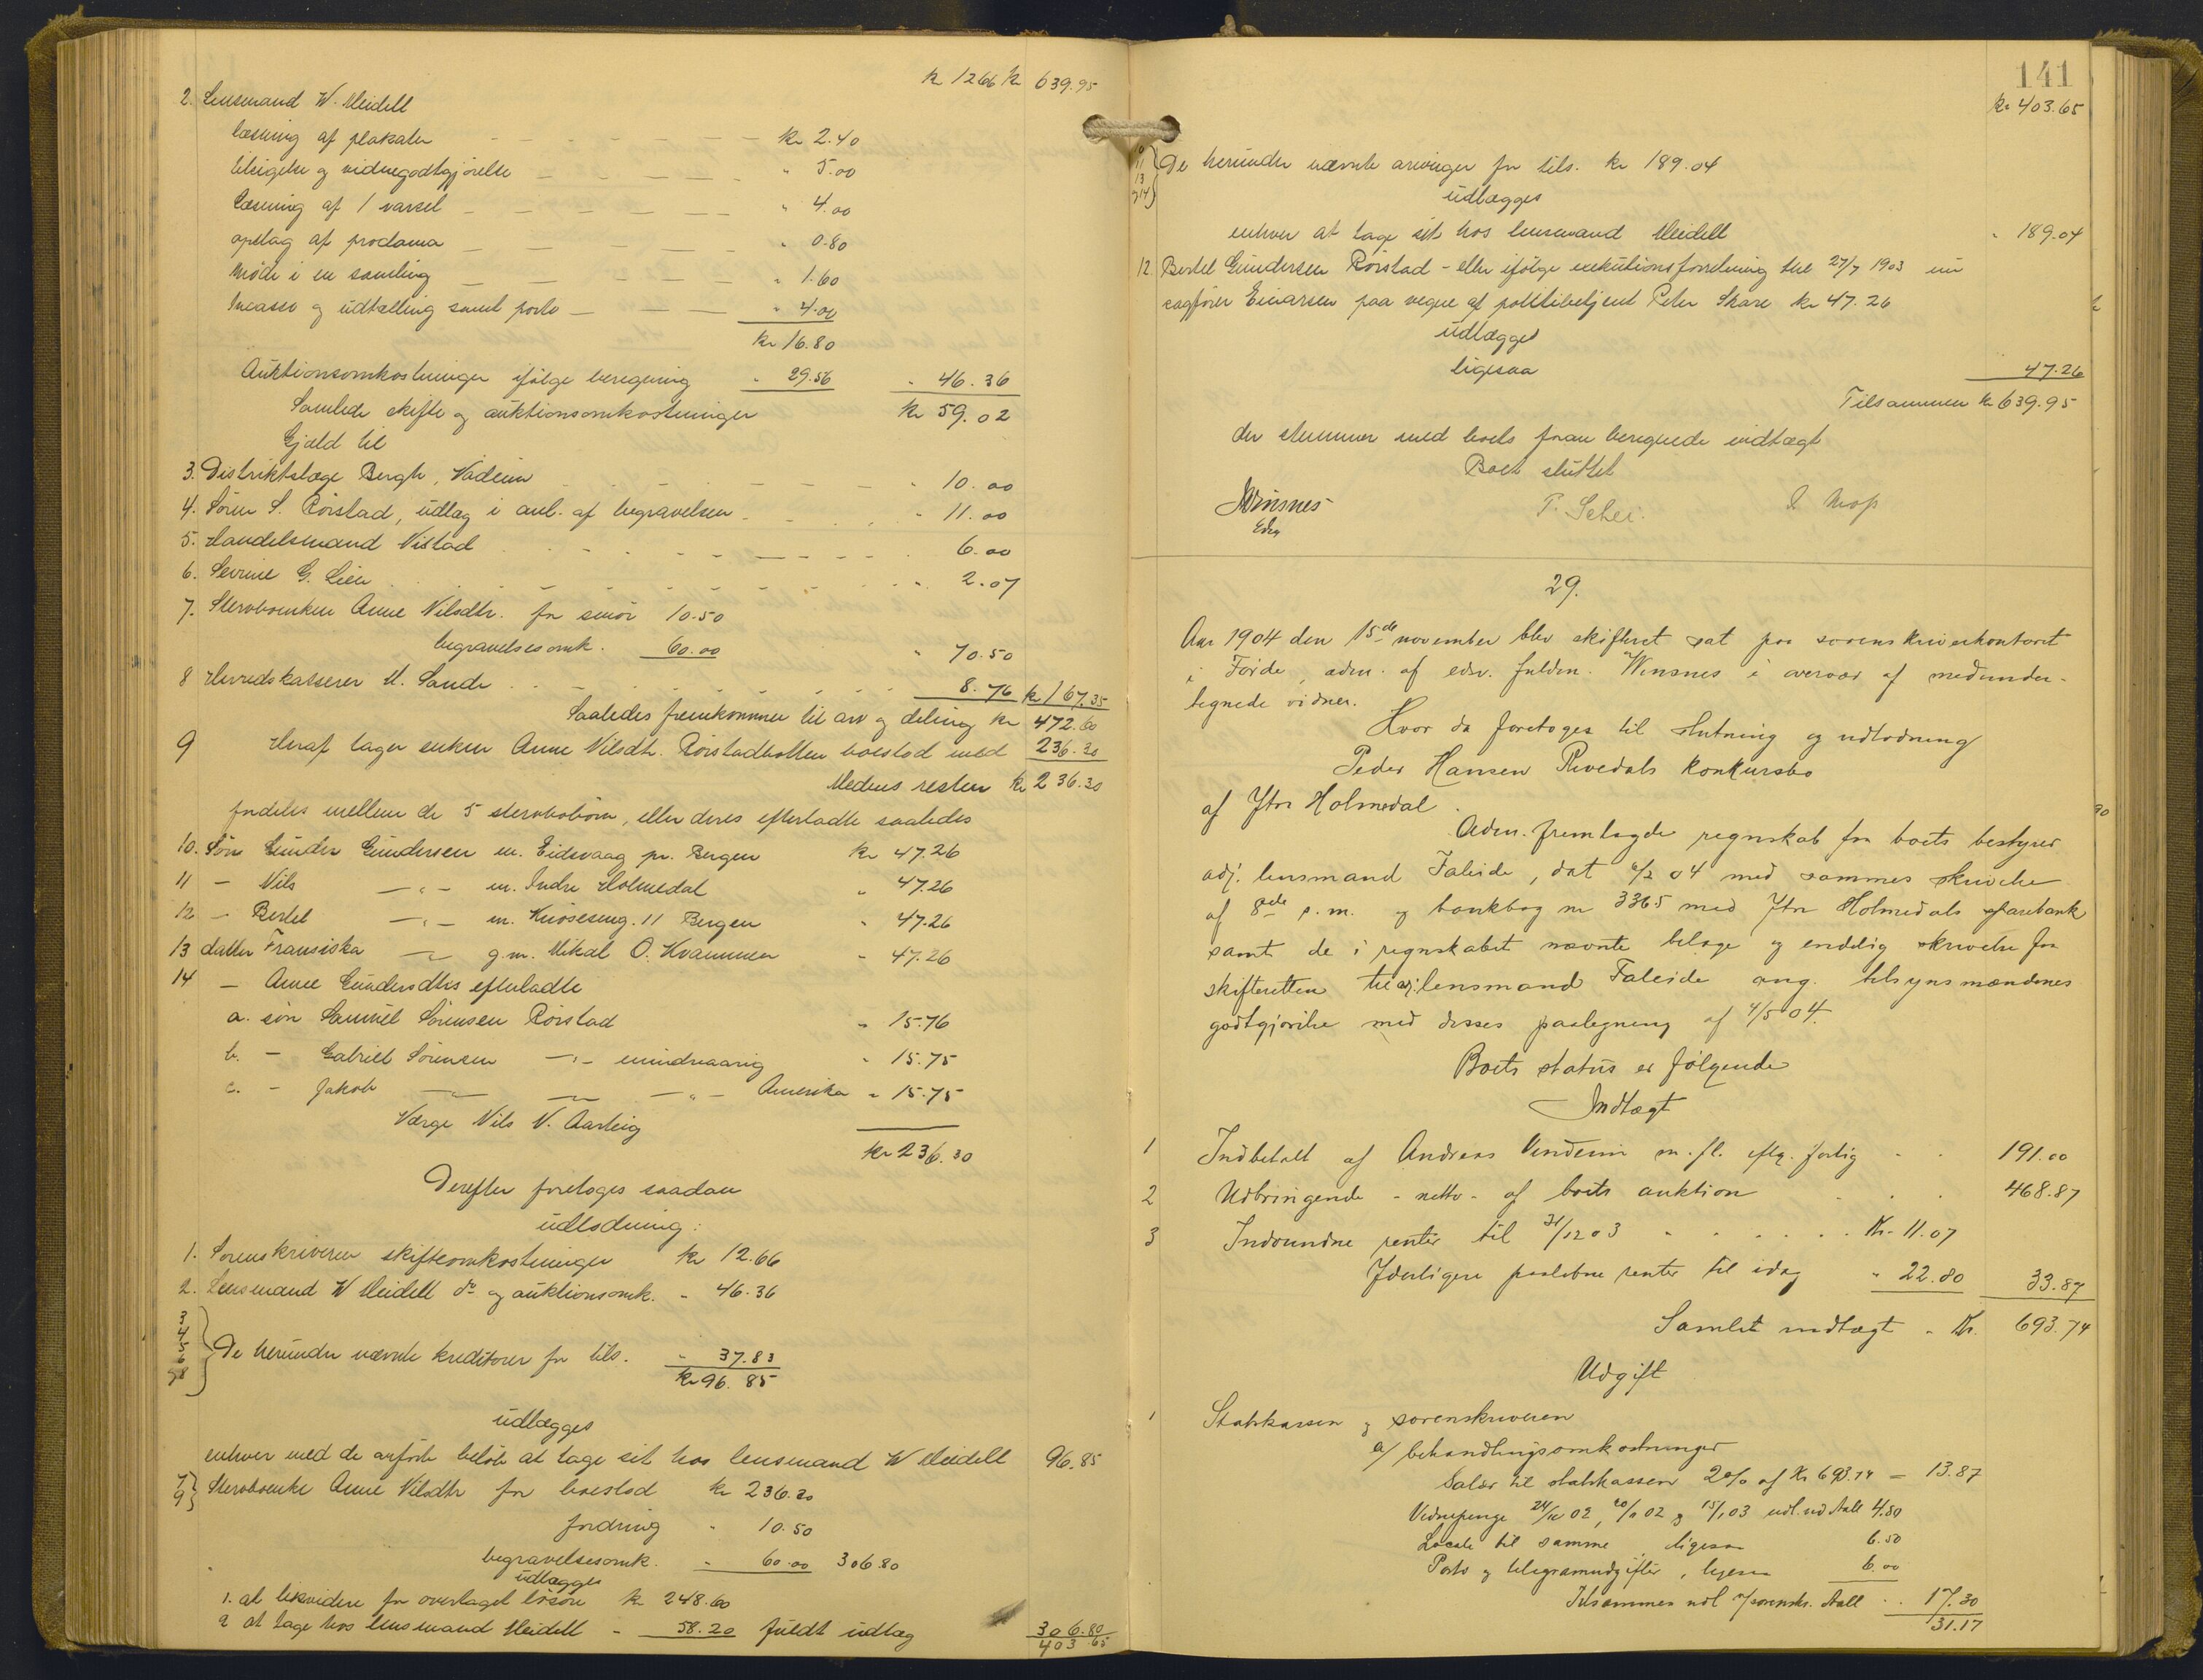 kr 1266 kr 639.95
2. Lensmand W. Meidell
læsning af plakater kr 2.40
tilsigelse og vidnegodtgjørelse " 5.00
læsning af 1 varsel " 4.00
opslag af proclama " 0.80
møde i en samling " 1.60
Incasso og udtælling samt porto " 4.00
kr 16.80
Auktionsomkostninger ifølge beregning " 29.56 " 46.36
Samlede skifte og auktionsomkostninger kr 59.02
Gjæld til
3. Distriktslæge Bergh, Vadeim " 10.00
4. Søren S. Rørstad, udlæg i anl. af begravelsen " 11.00
5. Handelsmand Nistad " 6.00
6. Severine G. Lien " 2.07
7. Stervboenken Anne Nilsdtr. for smør 10.50
begravelsesomk. 60.00 " 70.50
8 Herredskasserer M. Sande 8.76 kr 167.35
Saaledes fremkommer til arv og deling kr 472.60
9 Heraf tager enken Anne Nilsdtr. Rørstadbotten boeslod med 236.30
Medens resten kr 236.30
fordeles mellem de 5 stervbobørn, eller deres efterladte saaledes
10. Søn Gunder Gundersen m. Eidsvaag pr. Bergen kr 47.26
11 - Nils -"- m. Indre Holmedal " 47.26
12 - Bertel -"- m. 11 Bergen " 47.26
13 datter Fransiska -"- g.m. Mikal O. Kvammen " 47.26
14 - Anne Gundersdtrs efterladte
a. søn Samuel Sørensen Rørstad " 15.76
b. - Gabriel Sørensen -"- mindreaarig " 15.75
c. - Jakob -"- -"- -"- Amerika " 15.75
Værge Nils N. Aarleig
kr 236.30
Derefter foretoges saadan
udlodning:
1. Sorenskriveren skifteomkostninger kr 12.66
2. Lensmand W Meidell do og auktionsomk. " 46.36
3
4
5
6
og 8 } De herunder nævnte kreditorer for tils. " 37.83
kr 96.85
udlægges
enhver med de anførte beløb at tage sit hos lensmand W Meidell 96.85
7
9 } Stervboenke Anne Nilsdtr for boeslod kr 236.30
fordring " 10.50
begravelsesomk. " 60.00 306.80
udlægges
1. at likvidere for overtaget løsøre kr 248.60
2 at tage hos lensmand Meidell " 58.20 fuldt udlæg 306.80
403.65
141
kr 403.65
11
13
og 14 } De herunder nævnte arvinger for tils. kr 189.04
udlægges
enhver at tage sit hos lensmand Meidell " 189.04
12. Bertel Gundersen Rørstad - eller ifølge exekutionsforretning 27/7 1903 nu
sagfører Einarsen paa vegne af politibetjent Peter Skare kr 47.26
udlægges
ligesaa 47.26
Tilsammen kr 639.95
der stemmer med boets foran beregnede indtægt
Boet sluttet
Winsnes
Edsv
P. Schei.
29.
Aar 1904 den 15de november blev skifteret sat paa sorenskriverkontoret
i Førde, adm. af edsv. fuldm. Winsnes i overvær af medunder-
tegnede vidner.
Hvor da foretoges til slutning og udlodning
Peder Hansen Rivedals konkursbo
af Ytre Holmedal.
Adm. fremlagde regnskab fra boets bestyrer
adj. lensmand Faleide, dat 6/2 04 med sammes skrivelse
af 8de s.m. og bankbog nr 3365 med Ytre Holmedals sparebank
samt de i regnskabet nævnte bilage og endelig skrivelse fra
skifteretten til adj. lensmand Faleide ang. tilsynsmændenes
godtgjørelse med disses paategning af 4/5 04.
Boets status er følgende
Indtægt
1 Indbetalt af Andreas Vindeim m.fl. eftr. forlig 191.00
2 Udbringende - netto - af boets auktion 468.87
3 Indvundne renter til 31/12 03 Kr. 11.07
Yderligere paaløbne renter til idag " 22.80 33.87
Samlet indtægt - Kr. 693.74
Udgift
1 Statskassen og sorenskriveren
a/ behandlingsomkostninger
Salær til statskassen 2% af Kr 693.74 = 13.87
Vidnepenge 24/10 02, 20/11 02 og 15/1 03 udl. ved Aall 4.80
Locale til samme ligesaa 6.50
Porto og telegramudgifter, ligesaa 6.00
Tilsammen udl. af sorenskr. Aall 17.30
31.17